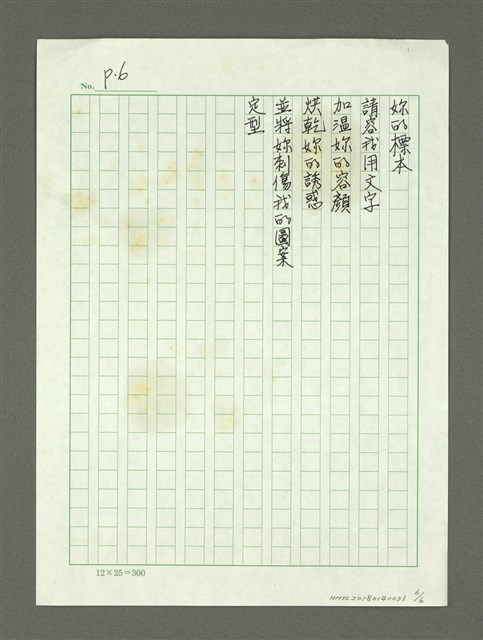 No. p.6
妳的標本
請容我用文字
加溫妳的容顏
烘乾妳的誘惑
並將妳刺傷我的圖案
定型
12×25=300
NMTL20180140031 6/6